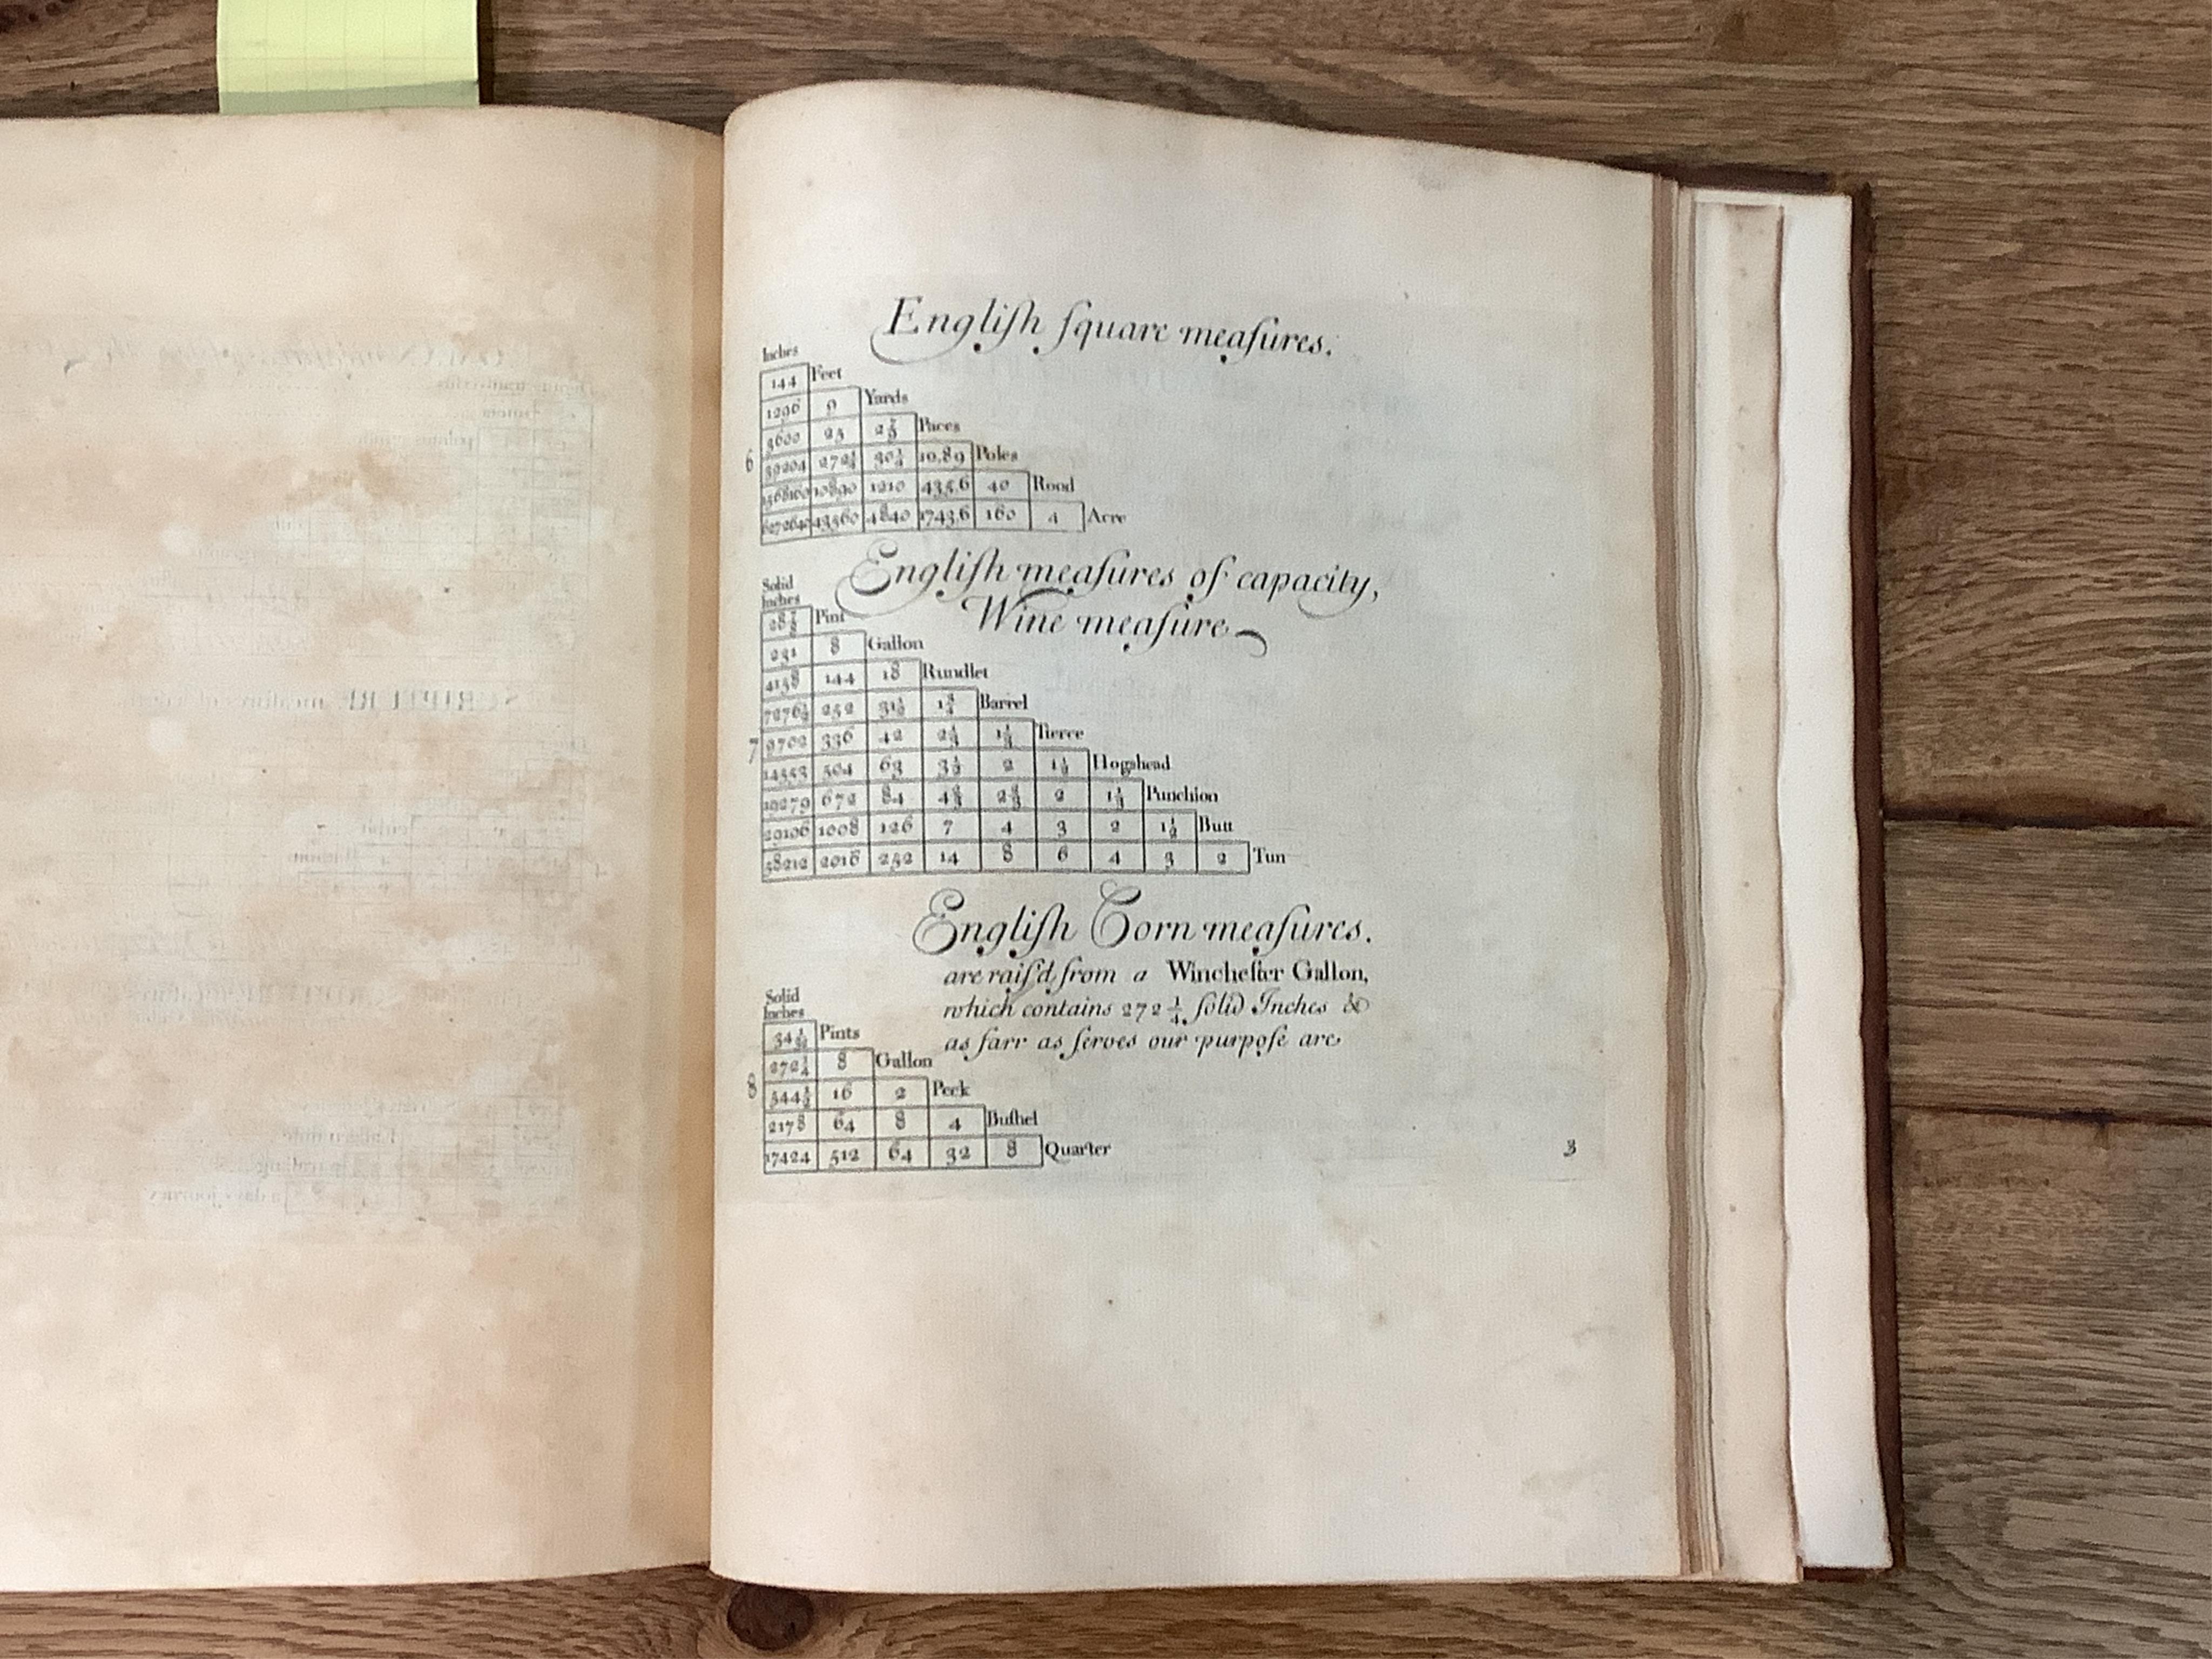 English ſquare meaſures.
Inches
144 Feet
1296 9 Yards
3600 25 Paces
6 39204 272¼ 30¼ 10,89 Poles
10890 1210 435,6 40 Rood
43560 4840 1743,6 160 4 Acre
Engliſh meaſures of capacity,
Wine meaſure
Solid
Inches
28⅞ Pint
231 8 Gallon
4158 144 18 Rundlet
7276½ 252 31½ 1¾ Barrel
7 9702 336 42 2⅓ 1⅓ Tierce
14553 504 63 3½ 2 1½ Hogshead
672 84 4⅔ 2⅔ 2 1⅓ Punchion
29106 1008 126 7 4 3 2 1½ Butt
58212 2016 252 14 8 6 4 3 2 Tun
Engliſh Corn meaſures.
are raiſ'd from a Wincheſter Gallon,
which contains 272¼ ſolid Inches &
as farr as ſerves our purpoſe are
Solid
Inches
Pints
272¼ 8 Gallon
8 544½ 16 2 Peck
2178 64 8 4 Buſhel
17424 512 64 32 8 Quarter
3